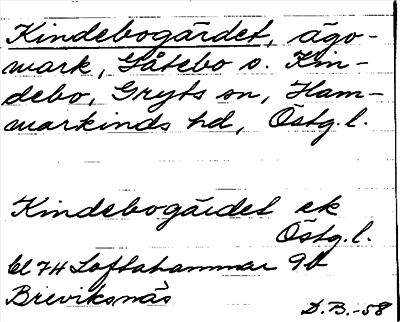 Kindebogärdet, ägo-
mark, Gåtebo o. Kin-
debo, Gryts sn, Ham-
markinds hd, Östg.l.
Kindebogärdet ek
Östg.l.
bl 74 Loftahammar 9b
Breviksnäs
D.B.-58